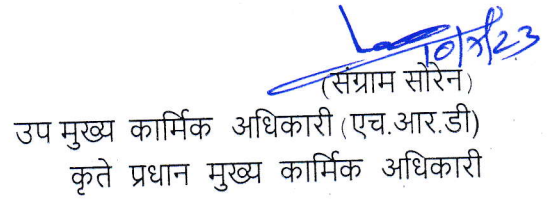 10/7/23
(संग्राम सोरेन)
उप मुख्य कार्मिक अधिकारी (एच.आर.डी)
कृते प्रधान मुख्य कार्मिक अधिकारी